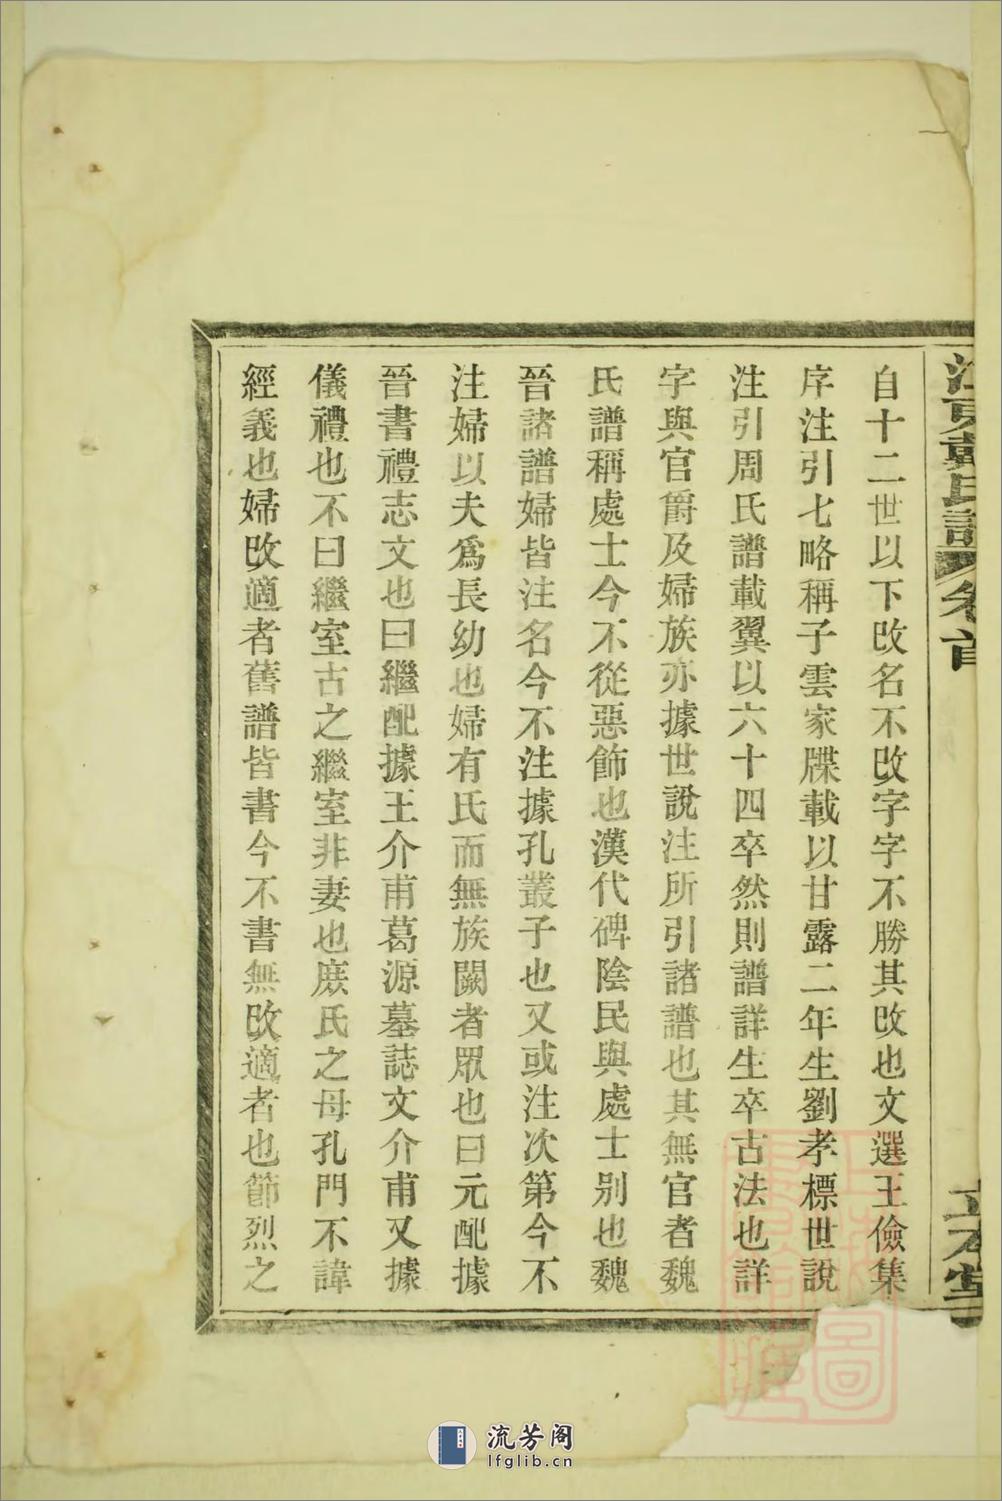 自十二世以下改名不改字字不勝其改也文選王儉集
序注引七略稱子雲家牒載以甘露二年生劉孝標世說
注引周氏譜載翼以六十四卒然則譜詳生卒古法也詳
字與官爵及婦族亦據世說注所引諸譜也其無官者魏
氏譜稱處士今不從惡飾也漢代碑陰民與處士別也魏
晉諸譜婦皆注名今不注據孔叢子也又或注次第今不
注婦以夫爲長幼也婦有氏而無族闕者眾也曰元配據
晉書禮志文也曰繼配據王介甫葛源墓誌文介甫又據
儀禮也不曰繼室古之繼室非妻也庶氏之母孔門不諱
經義也婦改適者舊譜皆書今不書無改適者也節烈之
戴氏譜 卷首
流芳阁
lfglib.cn